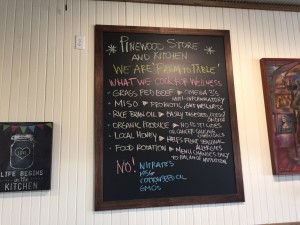 PINEWOOD STORE
AND KITCHEN
WE ARE "FARM TO TABLE"
WHAT WE COOK FOR WELLNESS
- GRASS FED BEEF ► OMEGA 3'S
ANTI-INFLAMMATORY
- MISO ► PROBIOTIC, GUT WELLNESS
- RICE BRAN OIL ► EASILY DIGESTED,
- ORGANIC PRODUCE ► NO PESTICIDES
OR CANCER CAUSING
- LOCAL HONEY ► HELPS FIGHT SEASONAL
ALLERGIES
- FOOD ROTATION ► MENU CHANGES DAILY
TO BALANCE NUTRITION
NO! NITRATES
MSG
COTTONSEED OIL
GMOS
LIFE BEGINS
IN THE
KITCHEN